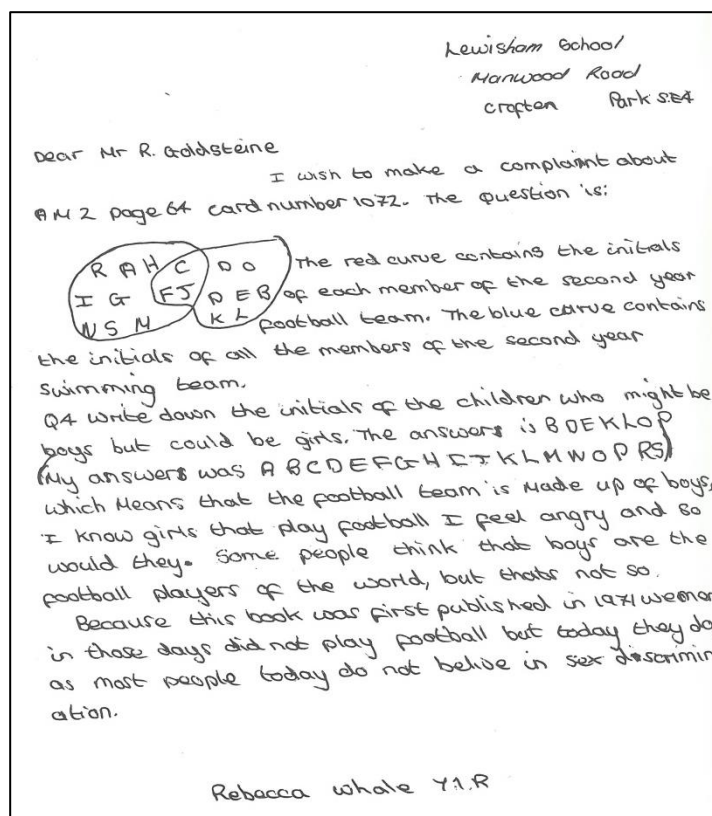 Lewisham School
Manwood Road
Crofton Park S.E4
Dear Mr R. Goldsteine
I wish to make a complaint about
AM2 page 64 card number 1072. The question is:
R A H C D O The red curve contains the initials
I G F J P E B of each member of the second year
N S M K L football team. The blue curve contains
the initials of all the members of the second year
swimming team.
Q4 write down the initials of the children who might be
boys but could be girls. The answers is B D E K L O P
(My answers was A B C D E F G H I J K L M N O P R S)
which means that the football team is made up of boys,
I know girls that play football I feel angry and so
would they. Some people think that boys are the
football players of the world, but thats not so.
Because this book was first published in 1971 wemen
in those days did not play football but today they do
as most people today do not belive in sex discrimin
ation.
Rebecca Whale Y.1.R